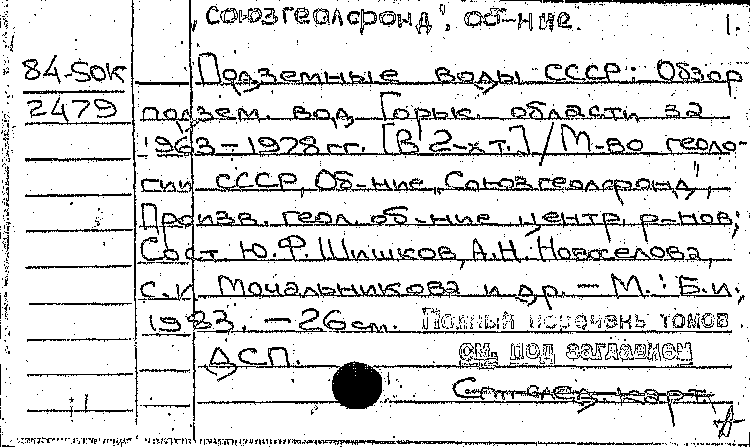 „Союзгеолфонд", об-ние. 1.
84-5OK Подземные воды СССР: Обзор
2479 подзем. вод Горьк. области за
1963-1978 гг. [В 2-х т.] / М-во геоло-
гии СССР, Об-ние „Союзгеолфонд",
Произв. геол. об-ние центр. р-нов;
Сост. Ю.Ф. Шишков, А.Н. Новоселова,
С.И. Мочальникова и др. – М.: Б.и.,
1983. – 26 см. Полный перечень томов
ДСП. см. под заглавием
См. след. карт.